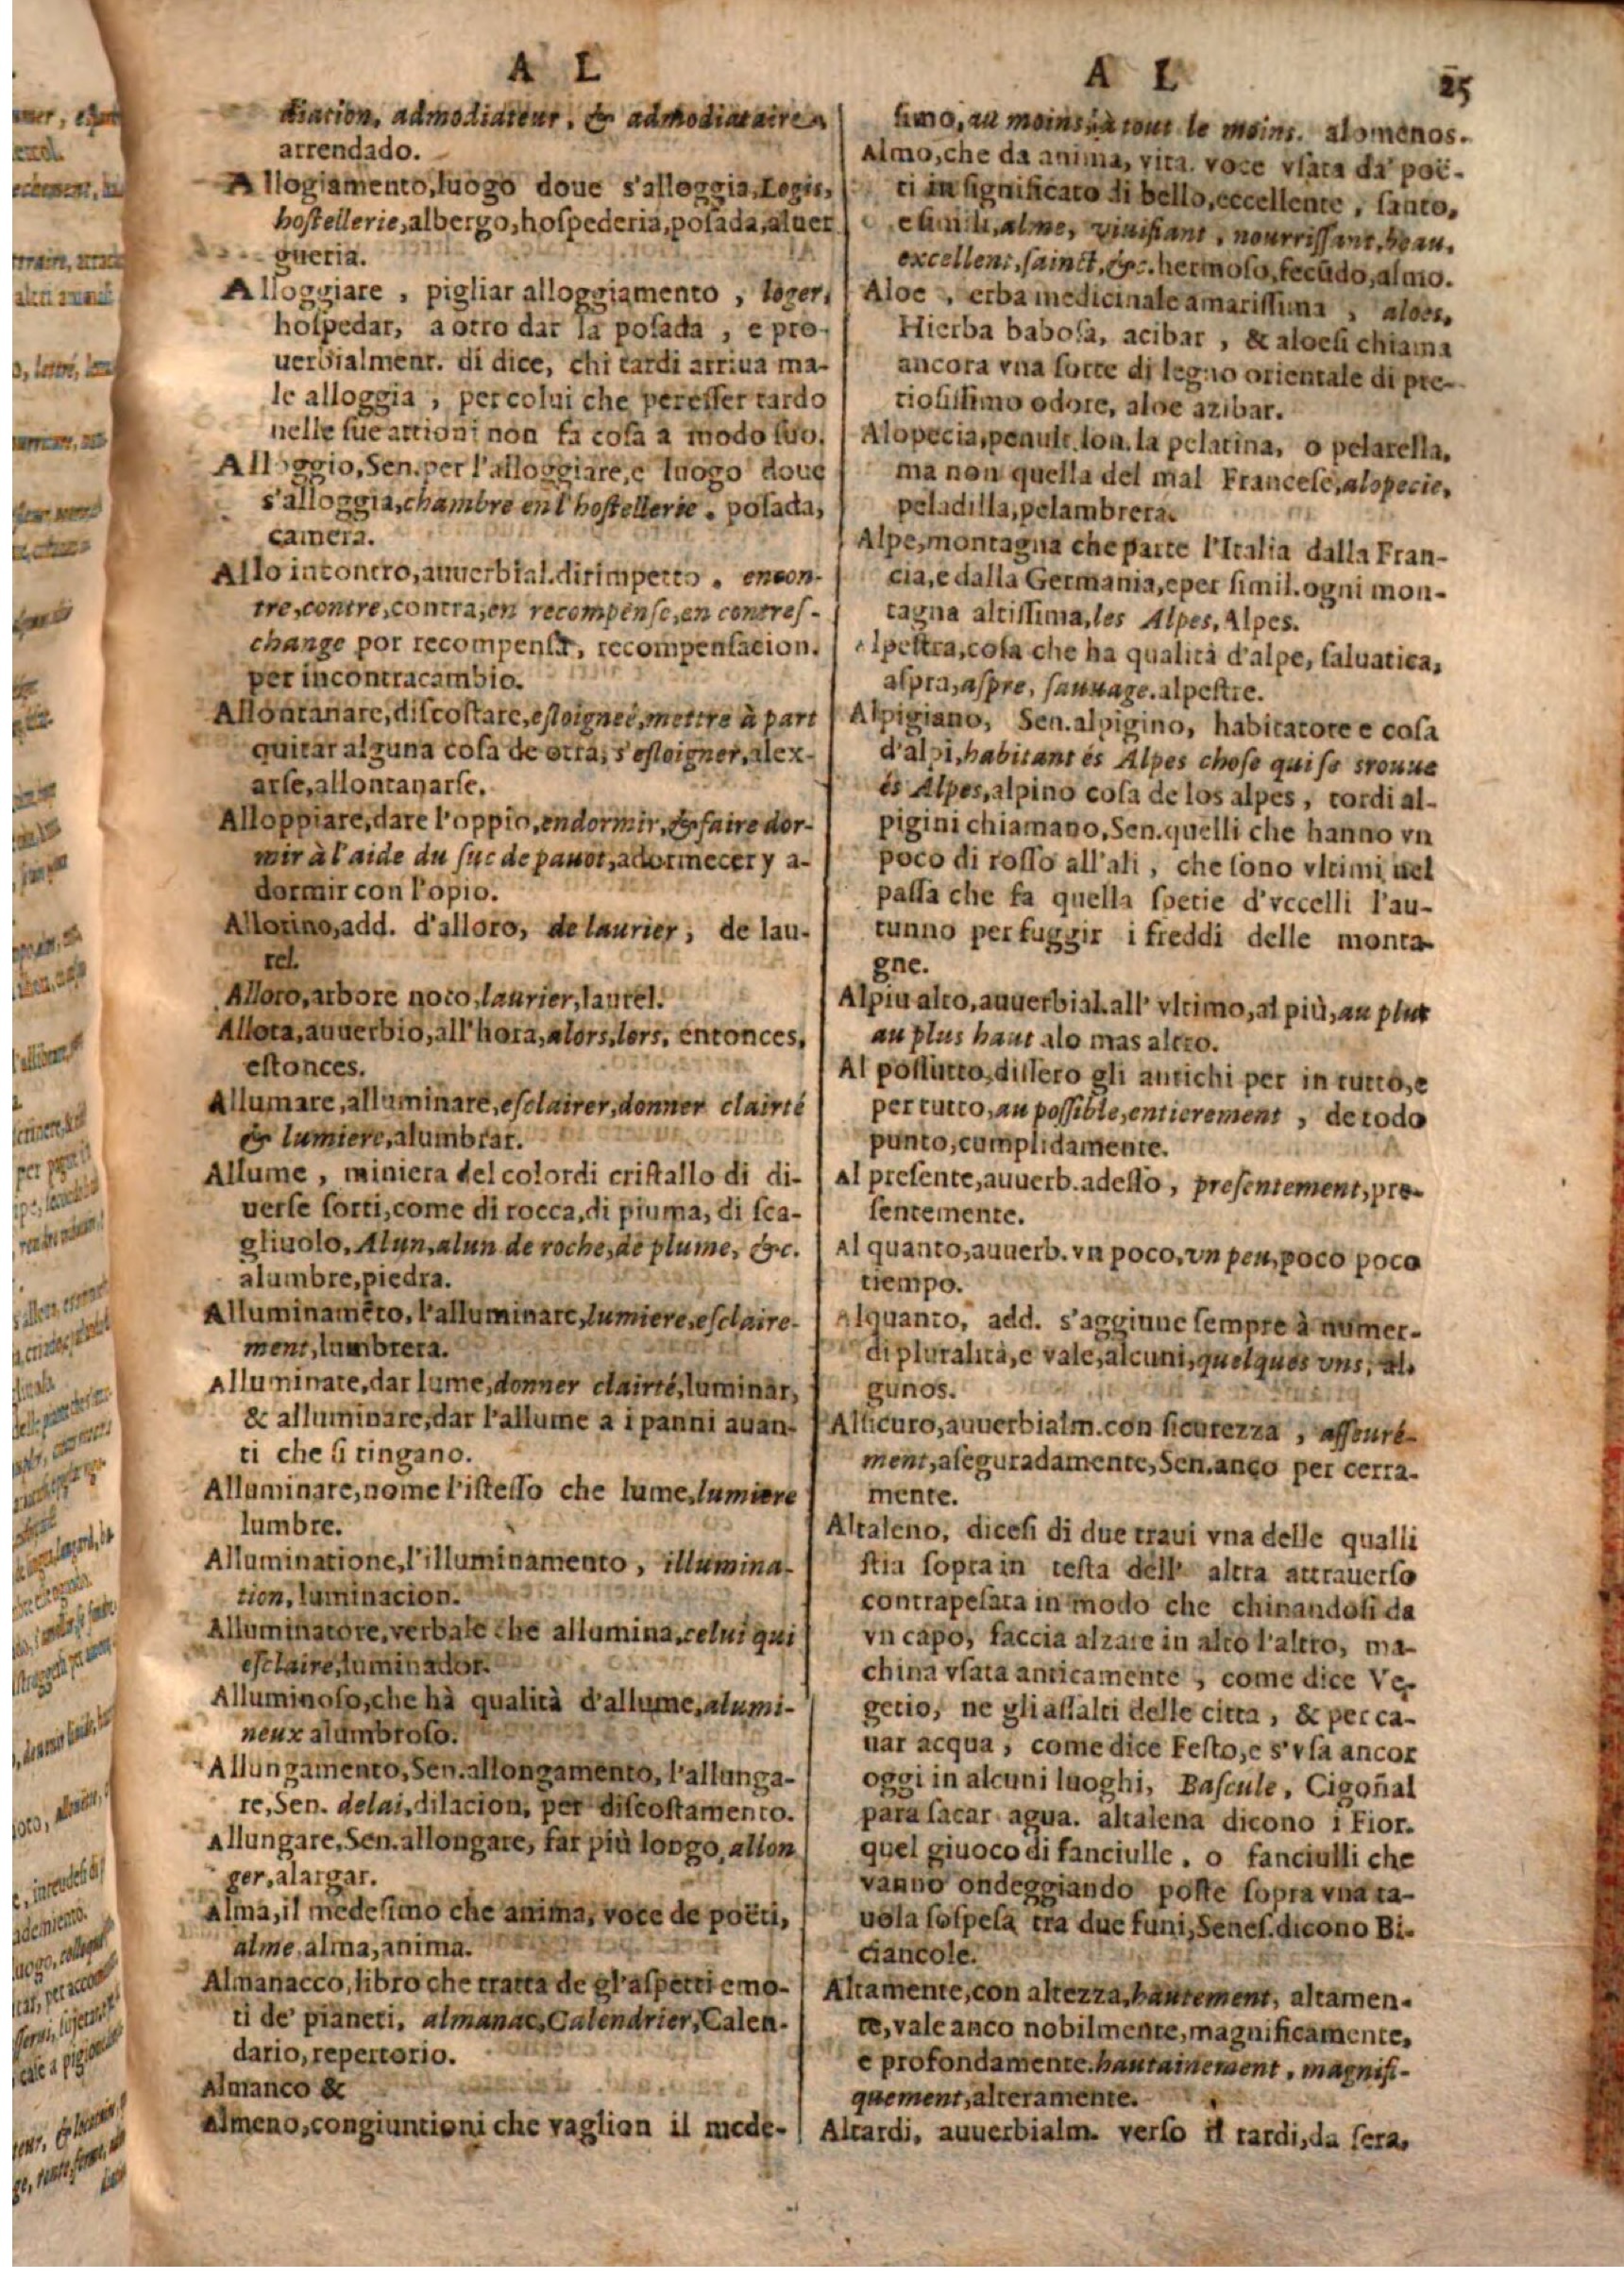 A L
diation, admodiateur, & admodiataire
arrendado.
Allogiamento,luogo doue s'alloggia,Logis,
hostellerie,albergo,hospederia,posada,aluer
gueria.
Alloggiare , pigliar alloggiamento , loger,
hospedar, a otro dar la posada , e pro-
uerbialment. di dice, chi tardi arriua ma-
le alloggia , per colui che per esser tardo
nelle sue attioni non fa cosa a modo suo.
Alloggio,Sen.per l'alloggiare,e luogo doue
s'alloggia,chambre en l'hostellerie. posada,
camera.
Allo incontro,auuerbial.dirimpetto. encon-
tre,contre,contra,en recompense,en contres-
change por recompensa, recompensacion.
per incontracambio.
Allontanare,discostare,esloigneé,mettre à part
quitar alguna cosa de otra, s'esloigner,alex-
arse,allontanarse.
Alloppiare,dare l'oppio,endormir,&faire dor-
mir à l'aide du suc de pauot,adormecer y a-
dormir con l'opio.
Allorino,add. d'alloro, de laurier, de lau-
rel.
Alloro,arbore noto,laurier,laurel.
Allora,auuerbio,all'hora,alors,lors, entonces,
estonces.
Allumare,alluminare,esclairer,donner clairté
& lumiere,alumbrar.
Allume , miniera del color di cristallo di di-
uerse sorti,come di rocca,di piuma, di sca-
gliuolo, Alun,alun de roche,de plume, &c.
alumbre,piedra.
Alluminamẽto,l'alluminare,lumiere,esclaire-
ment,lumbrera.
Alluminate,dar lume,donner clairté,luminar,
& alluminare,dar l'allume a i panni auan-
ti che si tingano.
Alluminare,nome l'istesso che lume,lumiere
lumbre.
Alluminatione,l'illuminamento , illumina-
tion, luminacion.
Alluminatore,verbale che allumina,celui qui
esclaire,luminador.
Alluminoso,che hà qualità d'allume,alumi-
neux alumbroso.
Allungamento,Sen.allongamento, l'allunga-
re,Sen. delai,dilacion, per discostamento.
Allungare,Sen.allongare, far più longo,allon
ger,alargar.
Alma,il medesimo che anima, voce de poëti,
alme,alma,anima.
Almanacco,libro che tratta de gl'aspetti e mo-
ti de' pianeti, almanac,Calendrier,Calen-
dario,repertorio.
Almanco &
Almeno,congiuntioni che vaglion il mede-
A L
25
simo,au moins,à tout le moins. alomenos.
Almo,che da anima, vita. voce vsata da poë-
ti in significato di bello,eccellente , santo,
e simili,alme, viuifiant , nourrissant,beau,
excellent,sainct,&c.hermoso,fecũdo,almo.
Aloe , erba medicinale amarissima , aloes,
Hierba babosa, acibar , & aloesi chiama
ancora vna sorte di legno orientale di pre-
tiosissimo odore, aloe azibar.
Alopecia,penult.lon.la pelatina, o pelarella,
ma non quella del mal Francese,alopecie,
peladilla,pelambrera.
Alpe,montagna che parte l'Italia dalla Fran-
cia,e dalla Germania,e per simil.ogni mon-
tagna altissima,les Alpes,Alpes.
Alpestra,cosa che ha qualità d'alpe, saluatica,
aspra,aspre, sauuage.alpestre.
Alpigiano, Sen.alpigino, habitatore e cosa
d'alpi,habitant és Alpes chose qui se trouue
és Alpes,alpino cosa de los alpes , tordi al-
pigini chiamano,Sen.quelli che hanno vn
poco di rosso all'ali , che sono vltimi nel
passa che fa quella spetie d'vccelli l'au-
tunno per fuggir i freddi delle monta-
gne.
Alpiu alto,auuerbial.all' vltimo,al più,au plus
au plus haut alo mas altro.
Al postutto,dissero gli antichi per in tutto,e
per tutto,au possible,entierement , de todo
punto,cumplidamente.
Al presente,auuerb.adesso , presentement,pre-
sentemente.
Al quanto,auuerb.vn poco,vn peu,poco poco
tiempo.
Alquanto, add. s'aggiunc sempre à numer-
di pluralità,e vale,alcuni,quelques vns, al-
gunos.
Alsicuro,auuerbialm.con sicurezza , asseuré-
ment,aseguradamente,Sen.anco per certa-
mente.
Altaleno, dicesi di due traui vna delle qualli
stia sopra in testa dell' altra attrauerso
contrapesata in modo che chinandosi da
vn capo, faccia alzare in alto l'altro, ma-
china vsata anticamente , come dice Ve-
getio, ne gli assalti delle citta , & per ca-
uar acqua , come dice Festo,e s'vsa ancor
oggi in alcuni luoghi, Bascule, Cigoñal
para sacar agua. altalena dicono i Fior.
quel giuoco di fanciulle, o fanciulli che
vanno ondeggiando poste sopra vna ta-
uola sospesa tra due funi,Senes.dicono Bi-
ciancole.
Altamente,con altezza,hautement, altamen-
te,vale anco nobilmente,magnificamente,
e profondamente.hautainement , magnifi-
quement,alteramente.
Altardi, auuerbialm. verso il tardi,da sera,